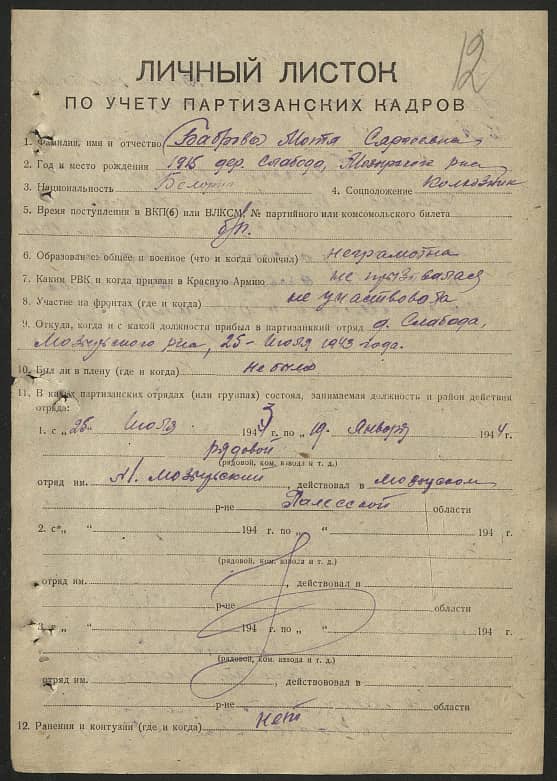 12
ЛИЧНЫЙ ЛИСТОК
ПО УЧЕТУ ПАРТИЗАНСКИХ КАДРОВ
1. Фамилия, имя и отчество Баброва Мотя Сергеевна
2. Год и место рождения 1915 дер. Слабода, р-на
3. Национальность Белорус 4. Соцположение Колхозник
5. Время поступления в ВКП(б) или ВЛКСМ, № партийного или комсомольского билета
б/п.
6. Образование общее и военное (что и когда окончил) неграмотна
7. Каким РВК и когда призван в Красную Армию не призывалася
8. Участие на фронтах (где и когда) не участвовала
9. Откуда, когда и с какой должности прибыл в партизанский отряд д. Слабода,
Мозырского р-на, 25 - Июля 1943 года.
10. Был ли в плену (где и когда) не была
11. В каких партизанских отрядах (или группах) состоял, занимаемая должность и район действия
отряда:
1. с „25- Июля 1943 г. по „19- Январь 1944 г.
рядовой
(рядовой, ком. взвода и т. д.)
отряд им. Мозырский, действовал в Мозырском
р-не Палесской области
2. с „ “ 194 г. по „ “ 194 г.
(рядовой, ком. взвода и т. д.)
отряд им. , действовал в
р-не области
3. с „ “ 194 г. по „ “ 194 г.
(рядовой, ком. взвода и т. д.)
отряд им. , действовал в
р-не области
12. Ранения и контузии (где и когда) нет